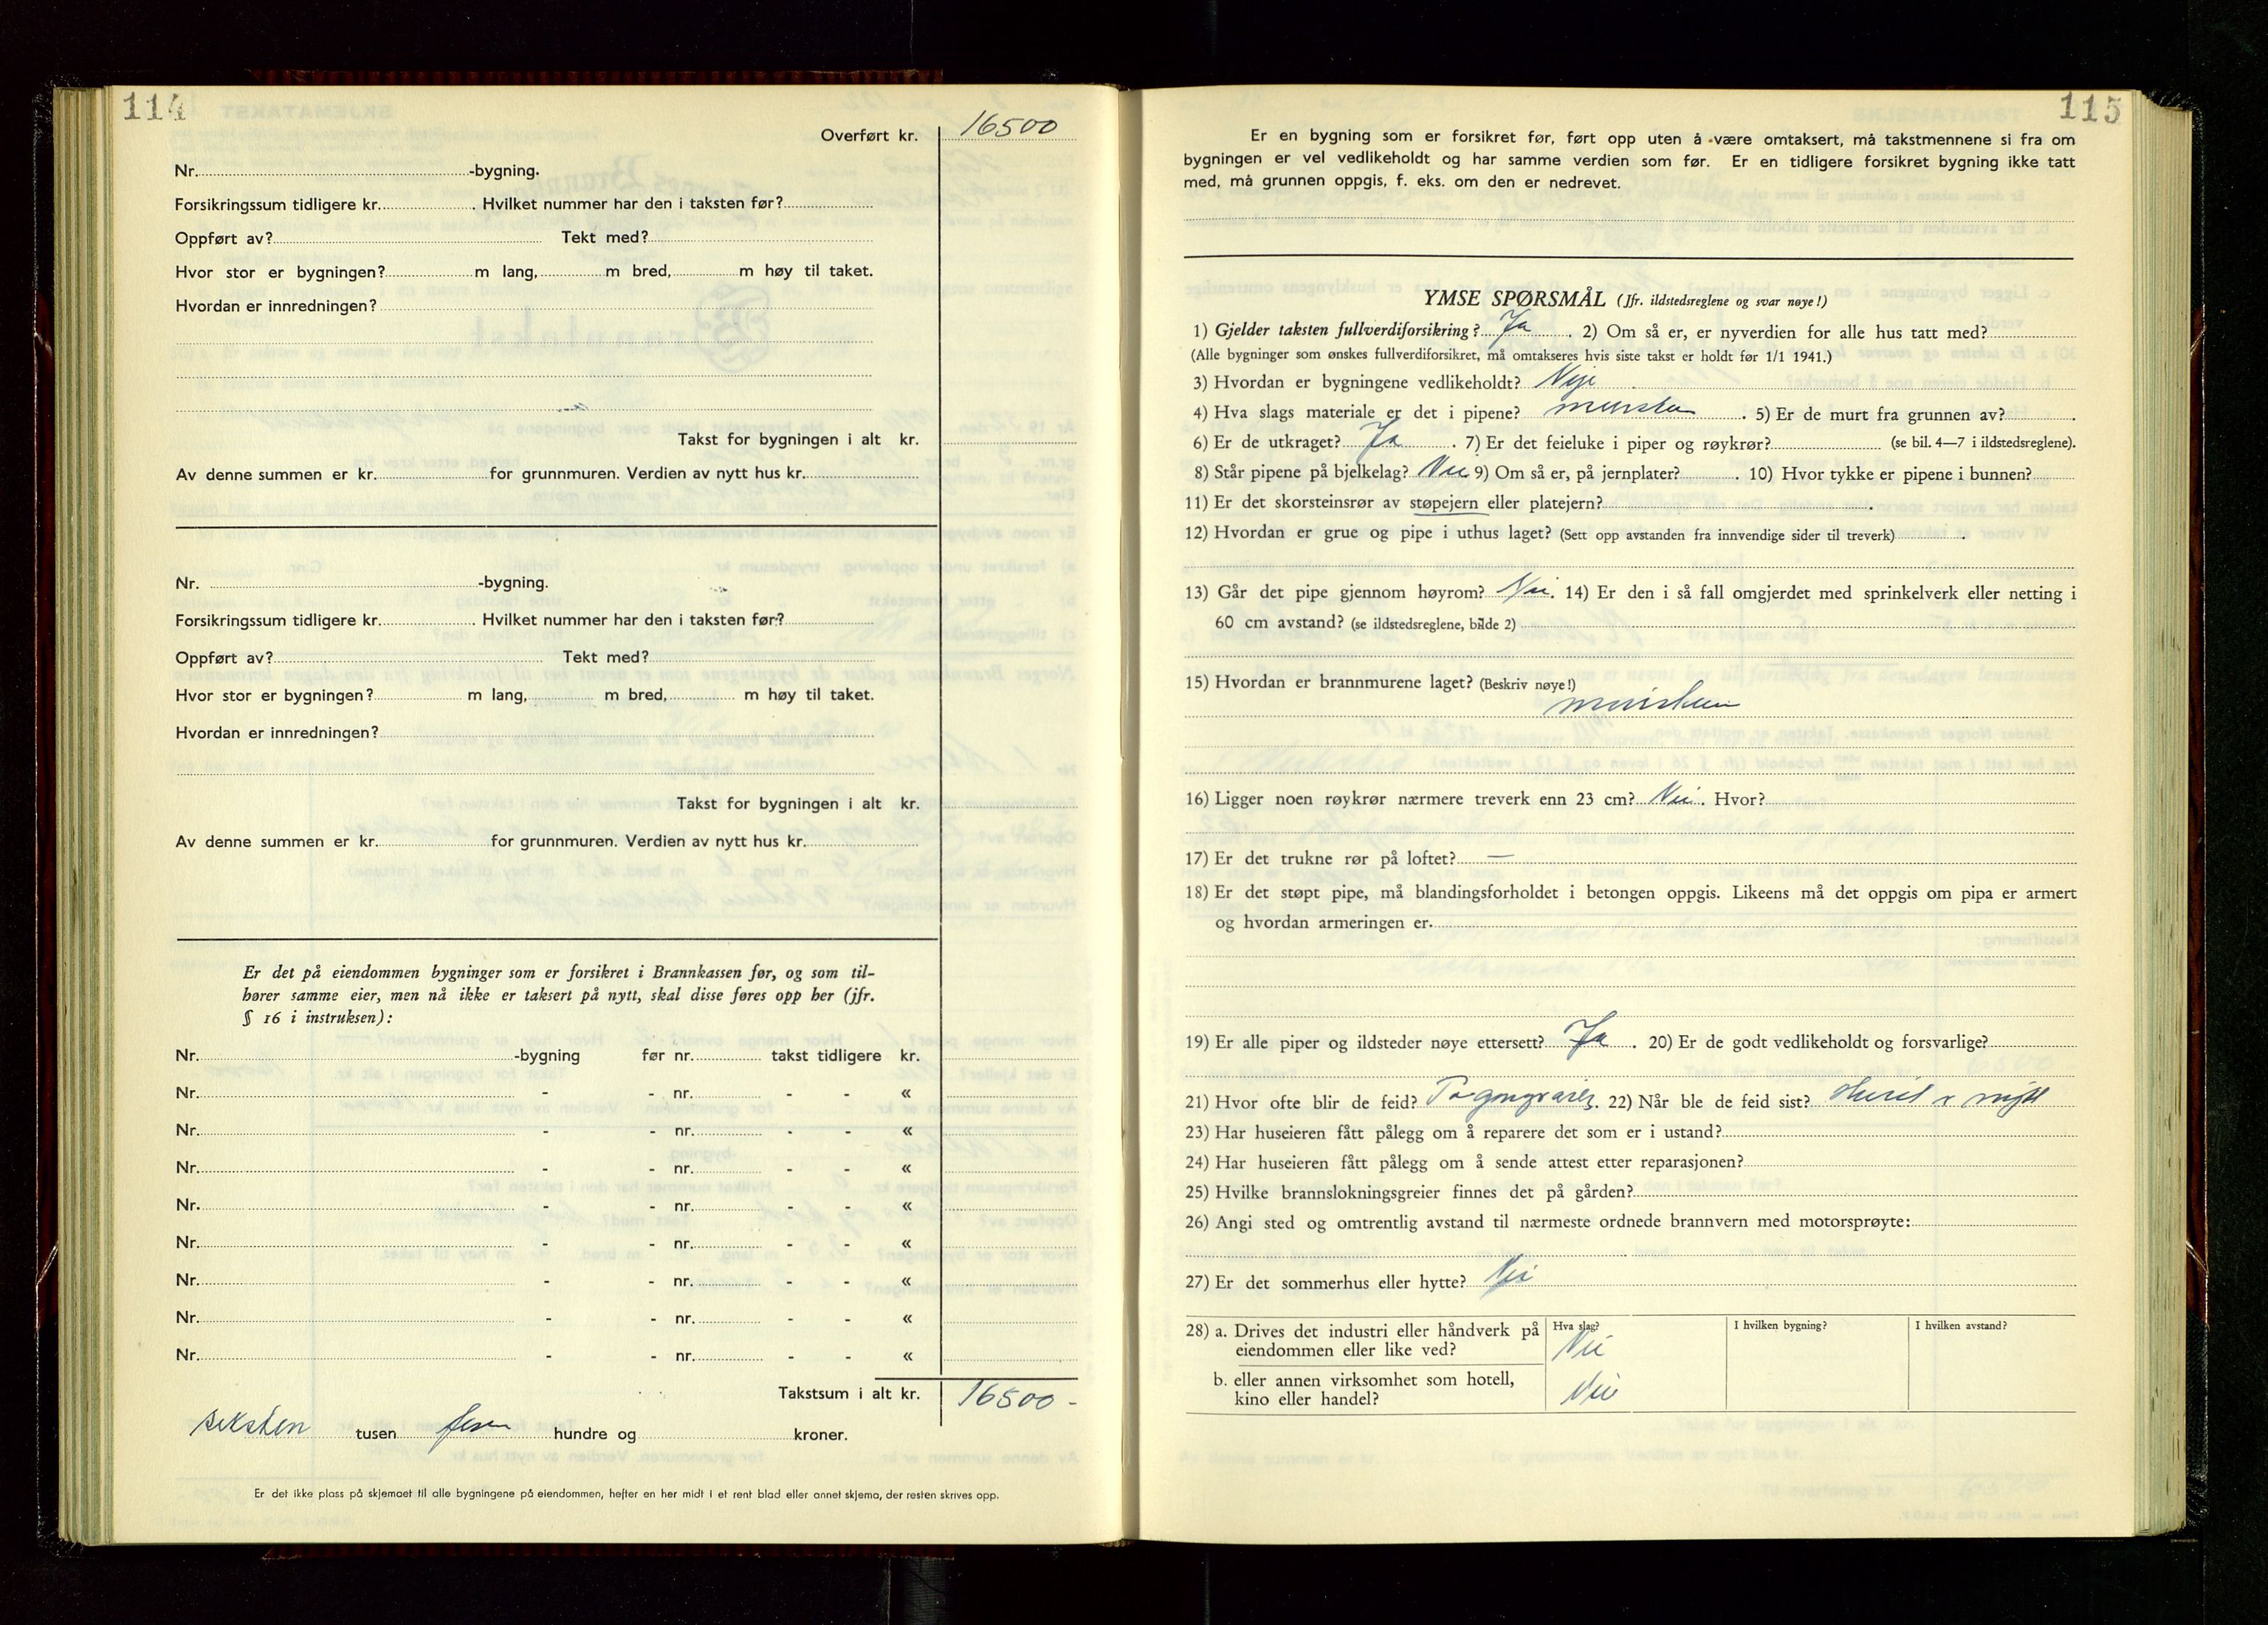 114
Overført kr. 16500
Nr. -bygning.
Forsikringssum tidligere kr. . Hvilket nummer har den i taksten før?
Oppført av? Tekt med?
Hvor stor er bygningen? m lang, m bred, m høy til taket.
Hvordan er innredningen?
Takst for bygningen i alt kr.
Av denne summen er kr. for grunnmuren. Verdien av nytt hus kr.
Nr. -bygning.
Forsikringssum tidligere kr. . Hvilket nummer har den i taksten før?
Oppført av? Tekt med?
Hvor stor er bygningen? m lang, m bred, m høy til taket.
Hvordan er innredningen?
Takst for bygningen i alt kr.
Av denne summen er kr. for grunnmuren. Verdien av nytt hus kr.
Er det på eiendommen bygninger som er forsikret i Brannkassen før, og som til-
hører samme eier, men nå ikke er taksert på nytt, skal disse føres opp her (jfr.
§ 16 i instruksen):
Nr. -bygning før nr. takst tidligere kr.
Nr. - - nr. - - «
Nr. - - nr. - - «
Nr. - - nr. - - «
Nr. - - nr. - - «
Nr. - - nr. - - «
Nr. - - nr. - - «
Nr. - - nr. - - «
Nr. - - nr. - - «
Takstsum i alt kr. 16500 -
seksten tusen fem hundre og kroner.
Er det ikke plass på skjemaet til alle bygningene på eiendommen, hefter en her midt i et rent blad eller annet skjema, der resten skrives opp.
115
Er en bygning som er forsikret før, ført opp uten å være omtaksert, må takstmennene si fra om
bygningen er vel vedlikeholdt og har samme verdien som før. Er en tidligere forsikret bygning ikke tatt
med, må grunnen oppgis, f. eks. om den er nedrevet.
YMSE SPØRSMÅL (Jfr. ildstedsreglene og svar nøye!)
1) Gjelder taksten fullverdiforsikring? Ja . 2) Om så er, er nyverdien for alle hus tatt med?
(Alle bygninger som ønskes fullverdiforsikret, må omtakseres hvis siste takst er holdt før 1/1 1941.)
3) Hvordan er bygningene vedlikeholdt? Nye
4) Hva slags materiale er det i pipene? murstein . 5) Er de murt fra grunnen av? .
6) Er de utkraget? Ja . 7) Er det feieluke i piper og røykrør? (se bil. 4—7 i ildstedsreglene).
8) Står pipene på bjelkelag? Nei 9) Om så er, på jernplater? . 10) Hvor tykke er pipene i bunnen?
11) Er det skorsteinsrør av støpejern eller platejern? .
12) Hvordan er grue og pipe i uthus laget? (Sett opp avstanden fra innvendige sider til treverk) .
13) Går det pipe gjennom høyrom? Nei. 14) Er den i så fall omgjerdet med sprinkelverk eller netting i
60 cm avstand? (se ildstedsreglene, bilde 2)
15) Hvordan er brannmurene laget? (Beskriv nøye!)
murstein
16) Ligger noen røykrør nærmere treverk enn 23 cm? Nei. Hvor?
17) Er det trukne rør på loftet? —
18) Er det støpt pipe, må blandingsforholdet i betongen oppgis. Likeens må det oppgis om pipa er armert
og hvordan armeringen er.
19) Er alle piper og ildsteder nøye ettersett? Ja . 20) Er de godt vedlikeholdt og forsvarlige?
21) Hvor ofte blir de feid? . 22) Når ble de feid sist? Huset er nytt
23) Har huseieren fått pålegg om å reparere det som er i ustand?
24) Har huseieren fått pålegg om å sende attest etter reparasjonen?
25) Hvilke brannslokningsgreier finnes det på gården?
26) Angi sted og omtrentlig avstand til nærmeste ordnede brannvern med motorsprøyte:
27) Er det sommerhus eller hytte? Nei
28) a. Drives det industri eller håndverk på eiendommen eller like ved? Hva slag? Nei I hvilken bygning? I hvilken avstand?
b. eller annen virksomhet som hotell, kino eller handel? Nei